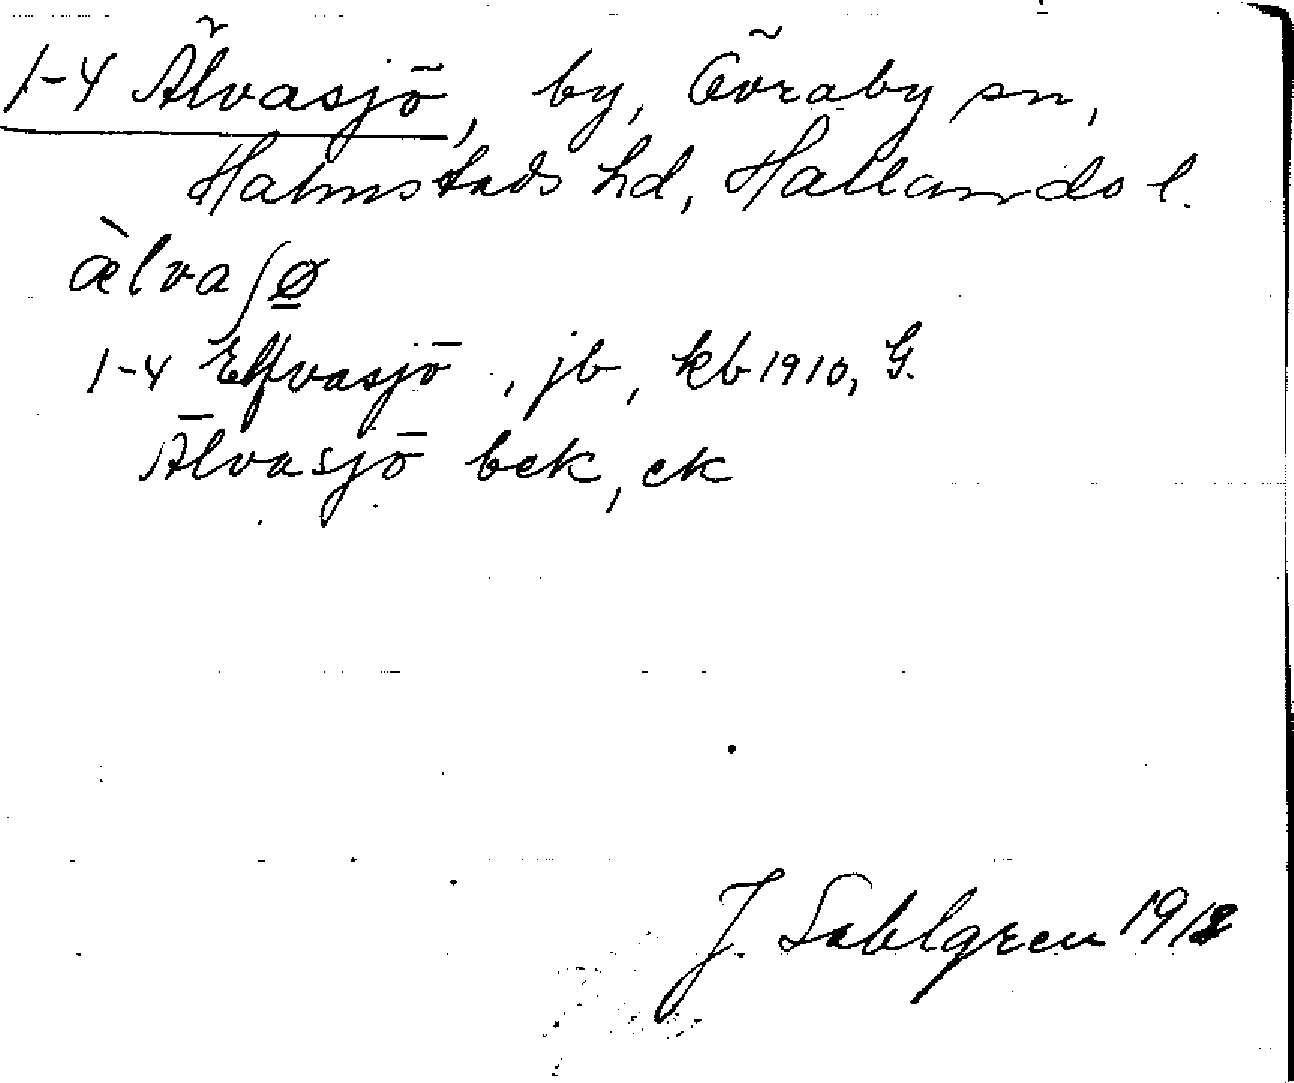 1-4 Älvasjö, by, Övraby sn,
Halmstads hd, Hallands l.
æ̀lvaʃø
1-4 Elfvasjö, jb, kb 1910, G.
Älvasjö bek, ek
J. Sahlgren 1918